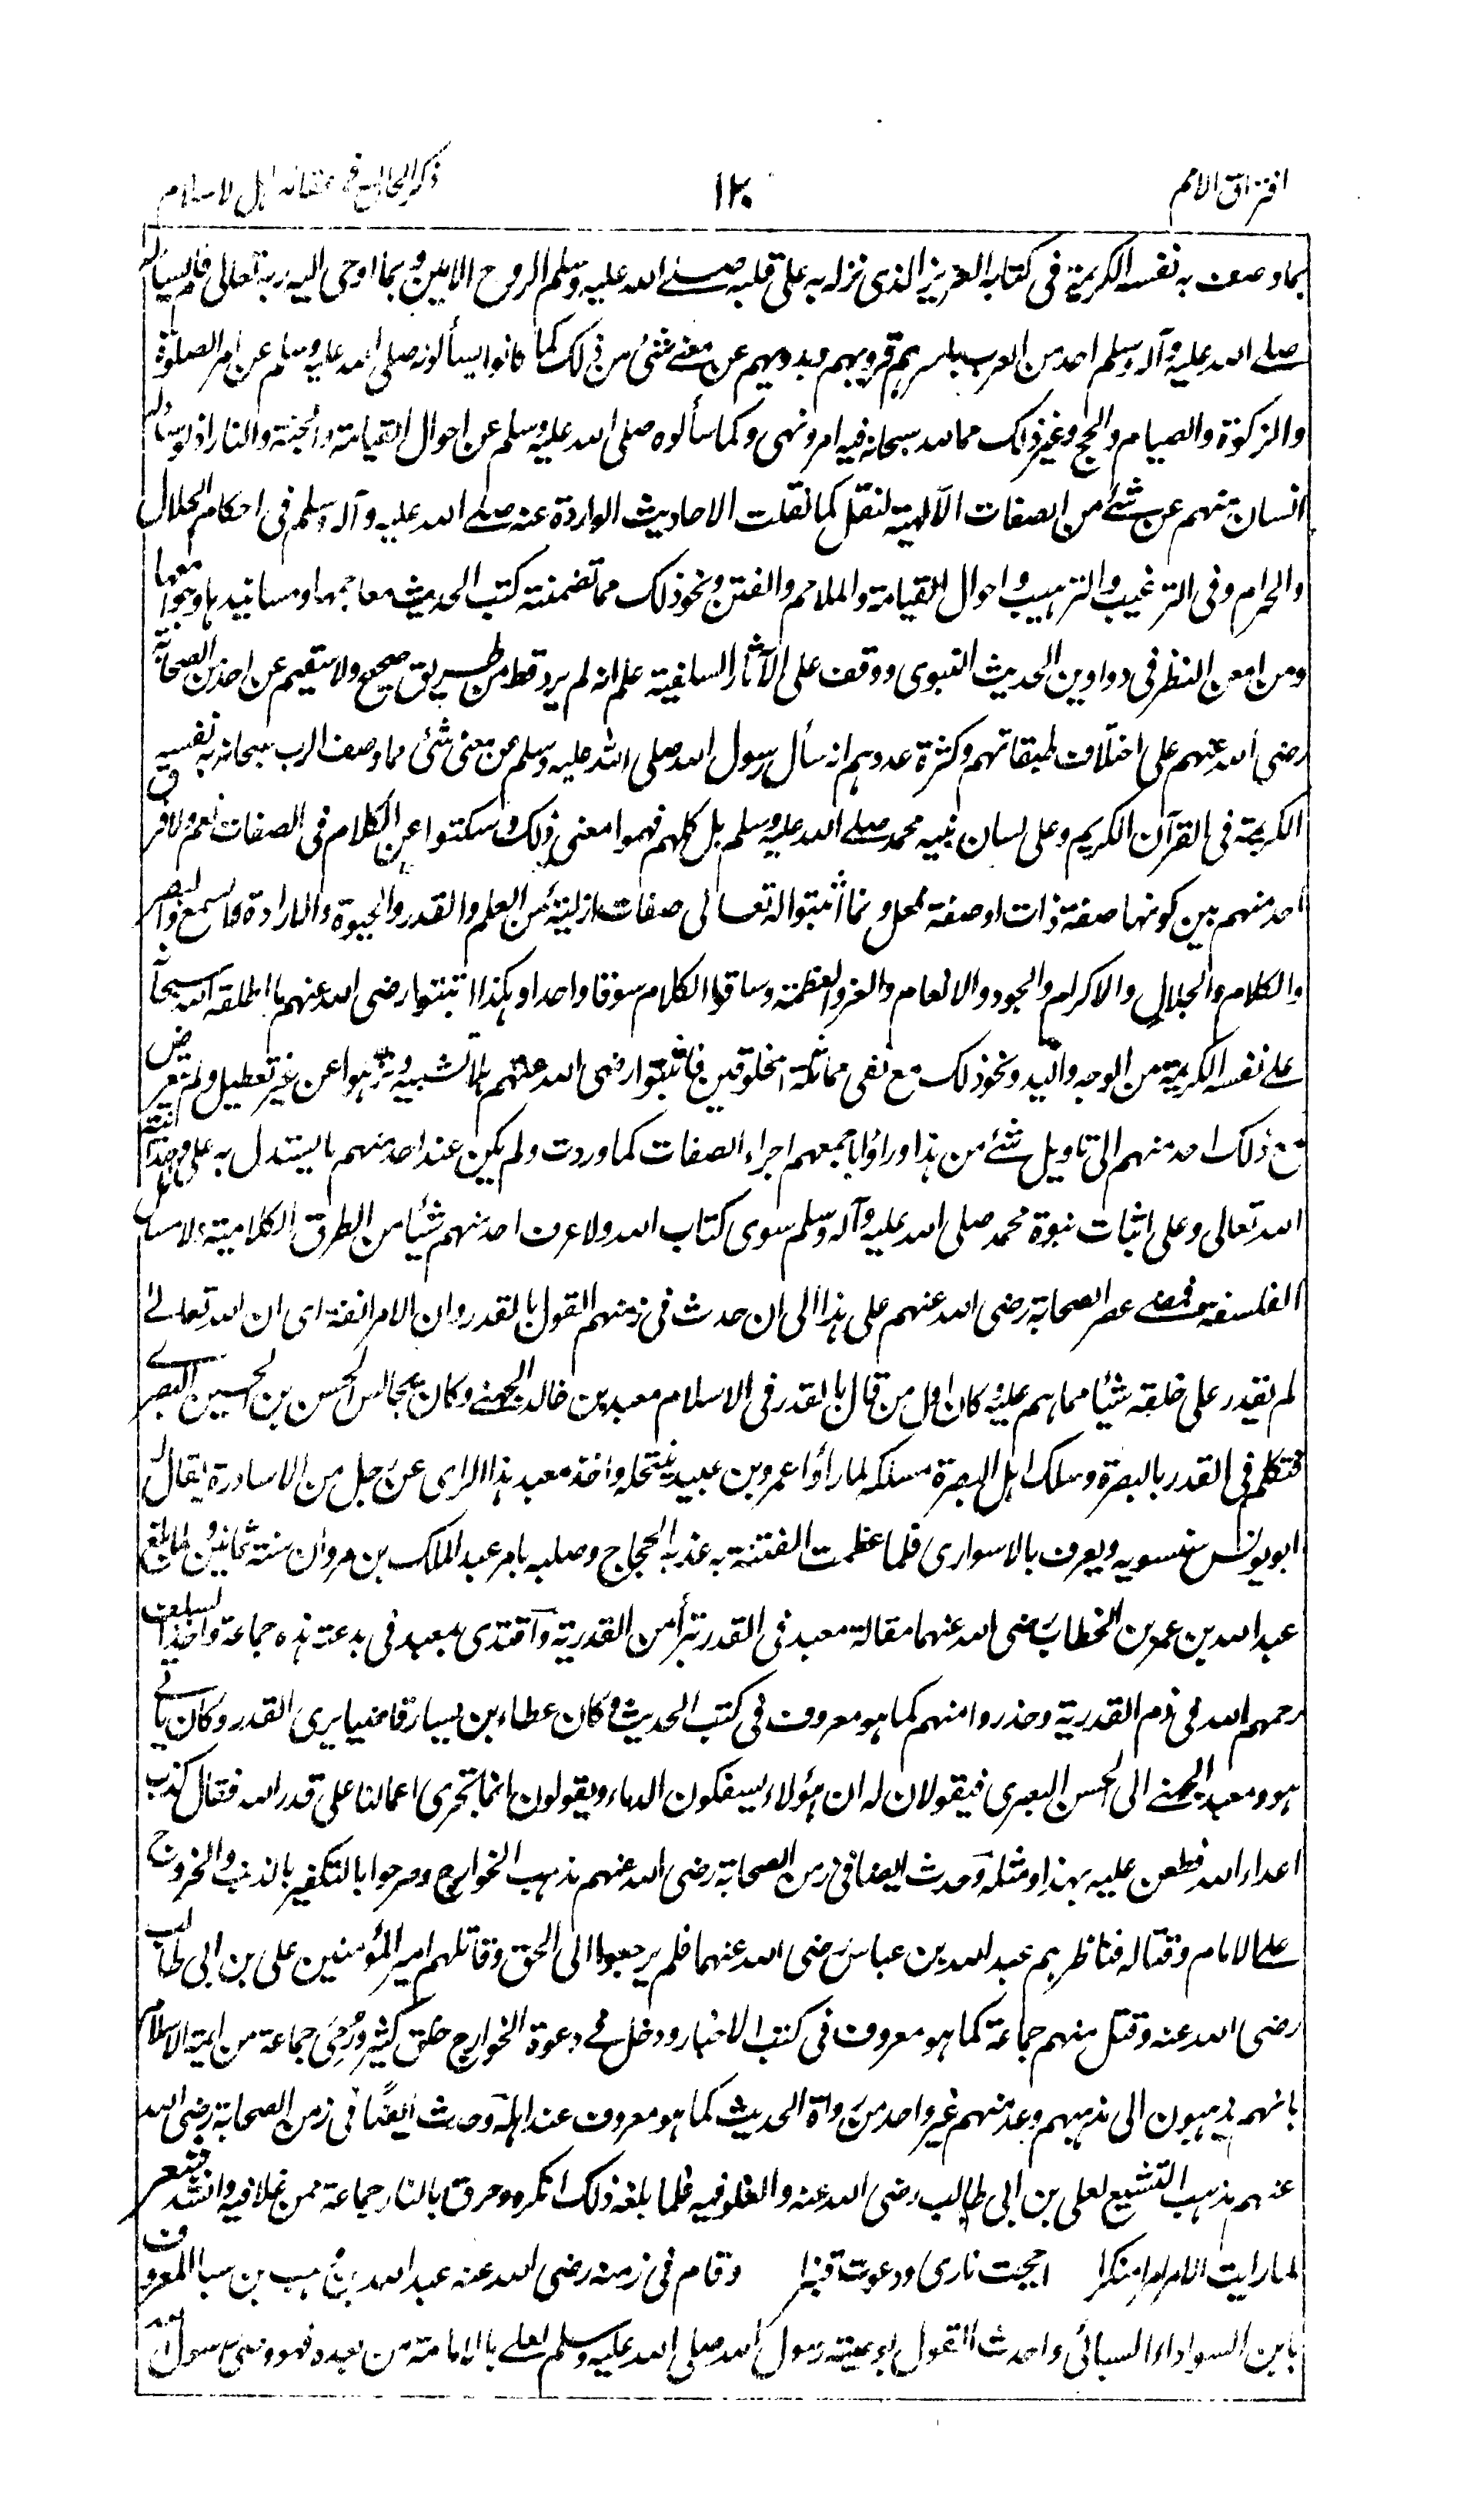 افتراق الامم
١٢٠
ذكر الحال فى عقائد اهل الاسلام
بما وصف به نفسه الكريمة فى كتابه العزيز الذى نزل به على قلبه صلے الله عليه وسلم الروح الامين وبما اوحى اليه ربه تعالى فلم يسأله
صلے الله عليه وآله وسلم احد من العرب باسرهم قرويهم وبدويهم عن معنے شئ من ذلك كما كانوا يسألونه صلى الله عليه وسلم عن امر الصلوة
والزكوة والصيام والحج وغير ذلك مما لله سبحانه فيه امر ونهى وكما سألوه صلى الله عليه وسلم عن احوال القيامة والجنة والنار اذ لو سأله
انسان منهم عن شئ من الصفات الآلهية لنقل كما نقلت الاحاديث الواردة عنه صلے الله عليه وآله وسلم فى احكام الحلال
والحرام وفى الترغيب والترهيب واحوال القيامة والملاحم والفتن ونحو ذلك مما تضمنته كتب الحديث معاجمها ومسانيدها وجوامعها
ومن امعن النظر فى دواوين الحديث النبوى ووقف على الآثار السلفية علم انه لم يرد قط من طريق صحيح ولا سقيم عن احد من الصحابة
رضى الله عنهم على اختلاف طبقاتهم وكثرة عددهم انه سأل رسول الله صلى الله عليه وسلم عن معنى شئ مما وصف الرب سبحانه به نفسه
الكريمة فى القرآن الكريم وعلى لسان نبيه محمد صلے الله عليه وسلم بل كلهم فهموا معنى ذلك وسكتوا عن الكلام فى الصفات نعم ولا فرق
احد منهم بين كونها صفة ذات او صفة فعل وانما اثبتوا له تعالى صفات ازلية من العلم والقدر والحيوة والارادة والسمع والبصر
والكلام والجلال والاكرام والجود والانعام والعز والعظمة وساقوا الكلام سوقا واحدا وهكذا اثبتوا رضى الله عنهم ما اطلقه الله سبحانه
على نفسه الكريمة من الوجه واليد ونحو ذلك مع نفى مماثلة المخلوقين فاثبتوا رضى الله عنهم بلا تشبيه ونزهوا عن غير تعطيل ولم يتعرض
مع ذلك احد منهم الى تاويل شئ من هذا ورأوا باجمعهم اجراء الصفات كما وردت ولم يكن عند احد منهم ما يستدل به على وحدانية
الله تعالى وعلى اثبات نبوة محمد صلى الله عليه وآله وسلم سوى كتاب الله ولا عرف احد منهم شيأ من الطرق الكلامية ولا مسائل
الفلسفة فمضے عصر الصحابة رضى الله عنهم على هذا الى ان حدث فى زمنهم القول بالقدر وان الامر انفة اى ان الله تعالى
لم يقدر على خلقه شيأ مما هم عليه وكان اول من قال بالقدر فى الاسلام معبد بن خالد الجهنے وكان يجالس الحسن بن الحسين البصرے
فتكلم فى القدر بالبصرة وسلك اهل البصرة مسلكه لما رأوا عمرو بن عبيد ينتحله واخذ معبد هذا الراى عن رجل من الاساورة يقال له
ابو يونس سنسويه ويعرف بالاسوارى فلما عظمت الفتنة به عذبه الحجاج وصلبه بامر عبد الملك بن مروان سنة ثمانين ولما بلغ
عبد الله بن عمر بن الخطاب رضى الله عنهما مقالة معبد فى القدر تبرأ من القدرية واقتدى بمعبد فى بدعته هذه جماعة واخذ السلف
رحمهم الله فى ذم القدرية وحذروا منهم كما هو معروف فى كتب الحديث وكان عطاء بن يسار قاضيا يرى القدر وكان ياتے
هو ومعبد الجهنے الى الحسن البصرى فيقولان له ان هؤلاء يسفكون الدماء ويقولون انما تجرى اعمالنا على قدر الله فقال كذب
اعداء الله فطعن عليه بهذا ومثله وحدث ايضا فى زمن الصحابة رضى الله عنهم مذهب الخوارج وصرحوا بالتكفير بالذنب والخروج
على الامام وقتاله فناظرهم عبد الله بن عباس رضى الله عنهما فلم يرجعوا الى الحق وقاتلهم امير المؤمنين على بن ابى طالب
رضى الله عنه وقتل منهم جماعة كما هو معروف فى كتب الاخبار ودخل فے دعوة الخوارج خلق كثير ورُمِىَ جماعة من ايمة الاسلام
بانهم يذهبون الى مذهبهم وعد منهم غير واحد من رواة الحديث كما هو معروف عند اهله وحدث ايضًا فى زمن الصحابة رضى الله
عنهم مذهب التشيع لعلى بن ابى طالب رضى الله عنه والغلو فيه فلما بلغه ذلك انكره وحرق بالنار جماعة ممن غلا فيه وانشد شعر
لما رايت الامر امرا منكرا اججت نارى ودعوت قنبرا وقام فى زمنه رضى الله عنه عبد الله بن وهب بن سبا المعروف
بابن السوداء السبائى واحدث القول بوصية رسول الله صلى الله عليه وسلم لعلے بالامامة من بعده فهو وصى رسول الله